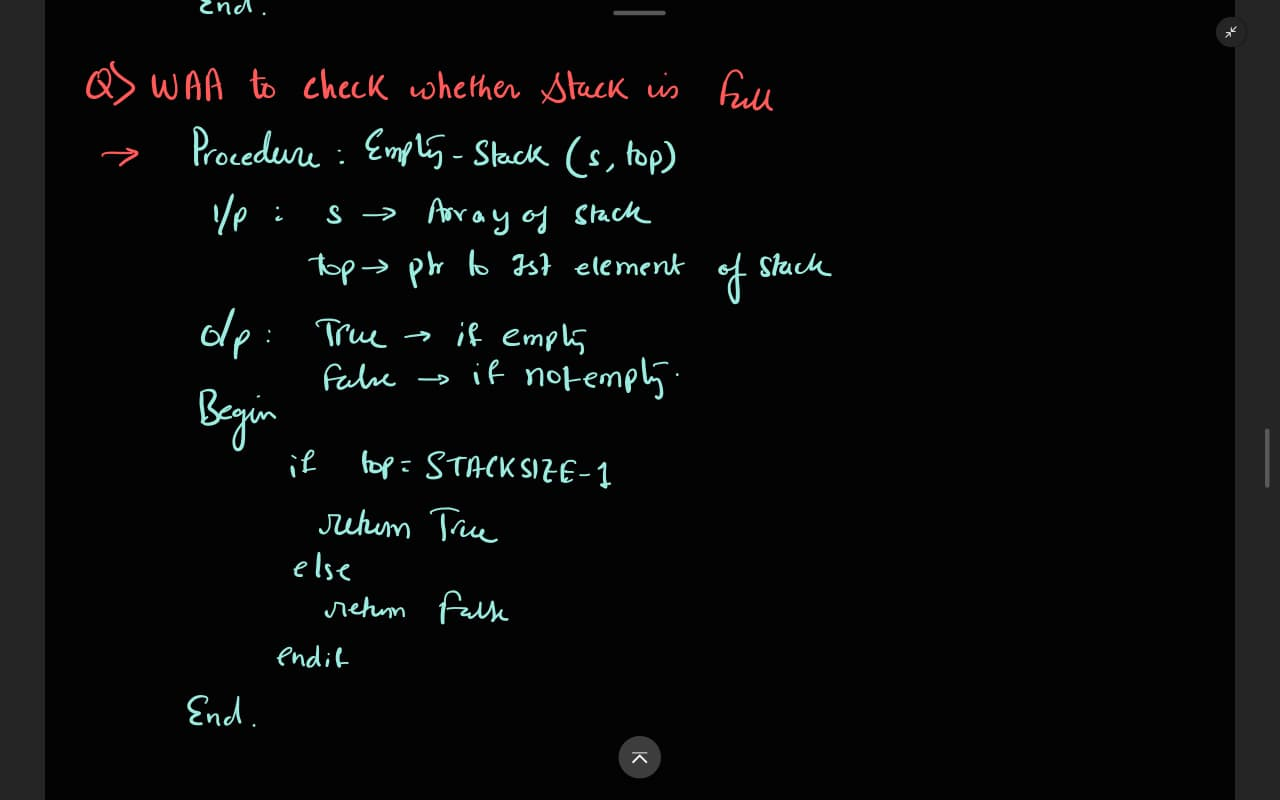 End.
Q> WAA to check whether Stack is full
→ Procedure : Empty-Stack (s, top)
I/p : s → Array of stack
top → ptr to Ist element of stack
o/p : True → if empty
False → if not empty.
Begin
if top = STACKSIZE-1
return True
else
return False
endif
End.